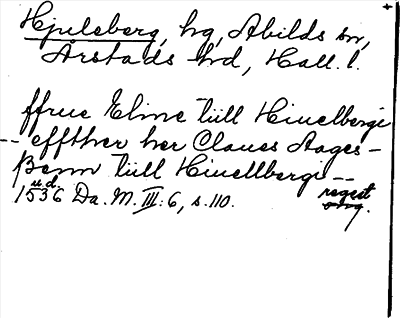 Hjulsberg, hg, Abilds sn,
Årstads hrd, Hall. l.
ffrue Eline till Hiuelbergi
-- effther her Claues Aages-
ßenn till Hiuellbergi --
u.d.
1536 Da. M. III: 6, s. 110.
regest
orig.